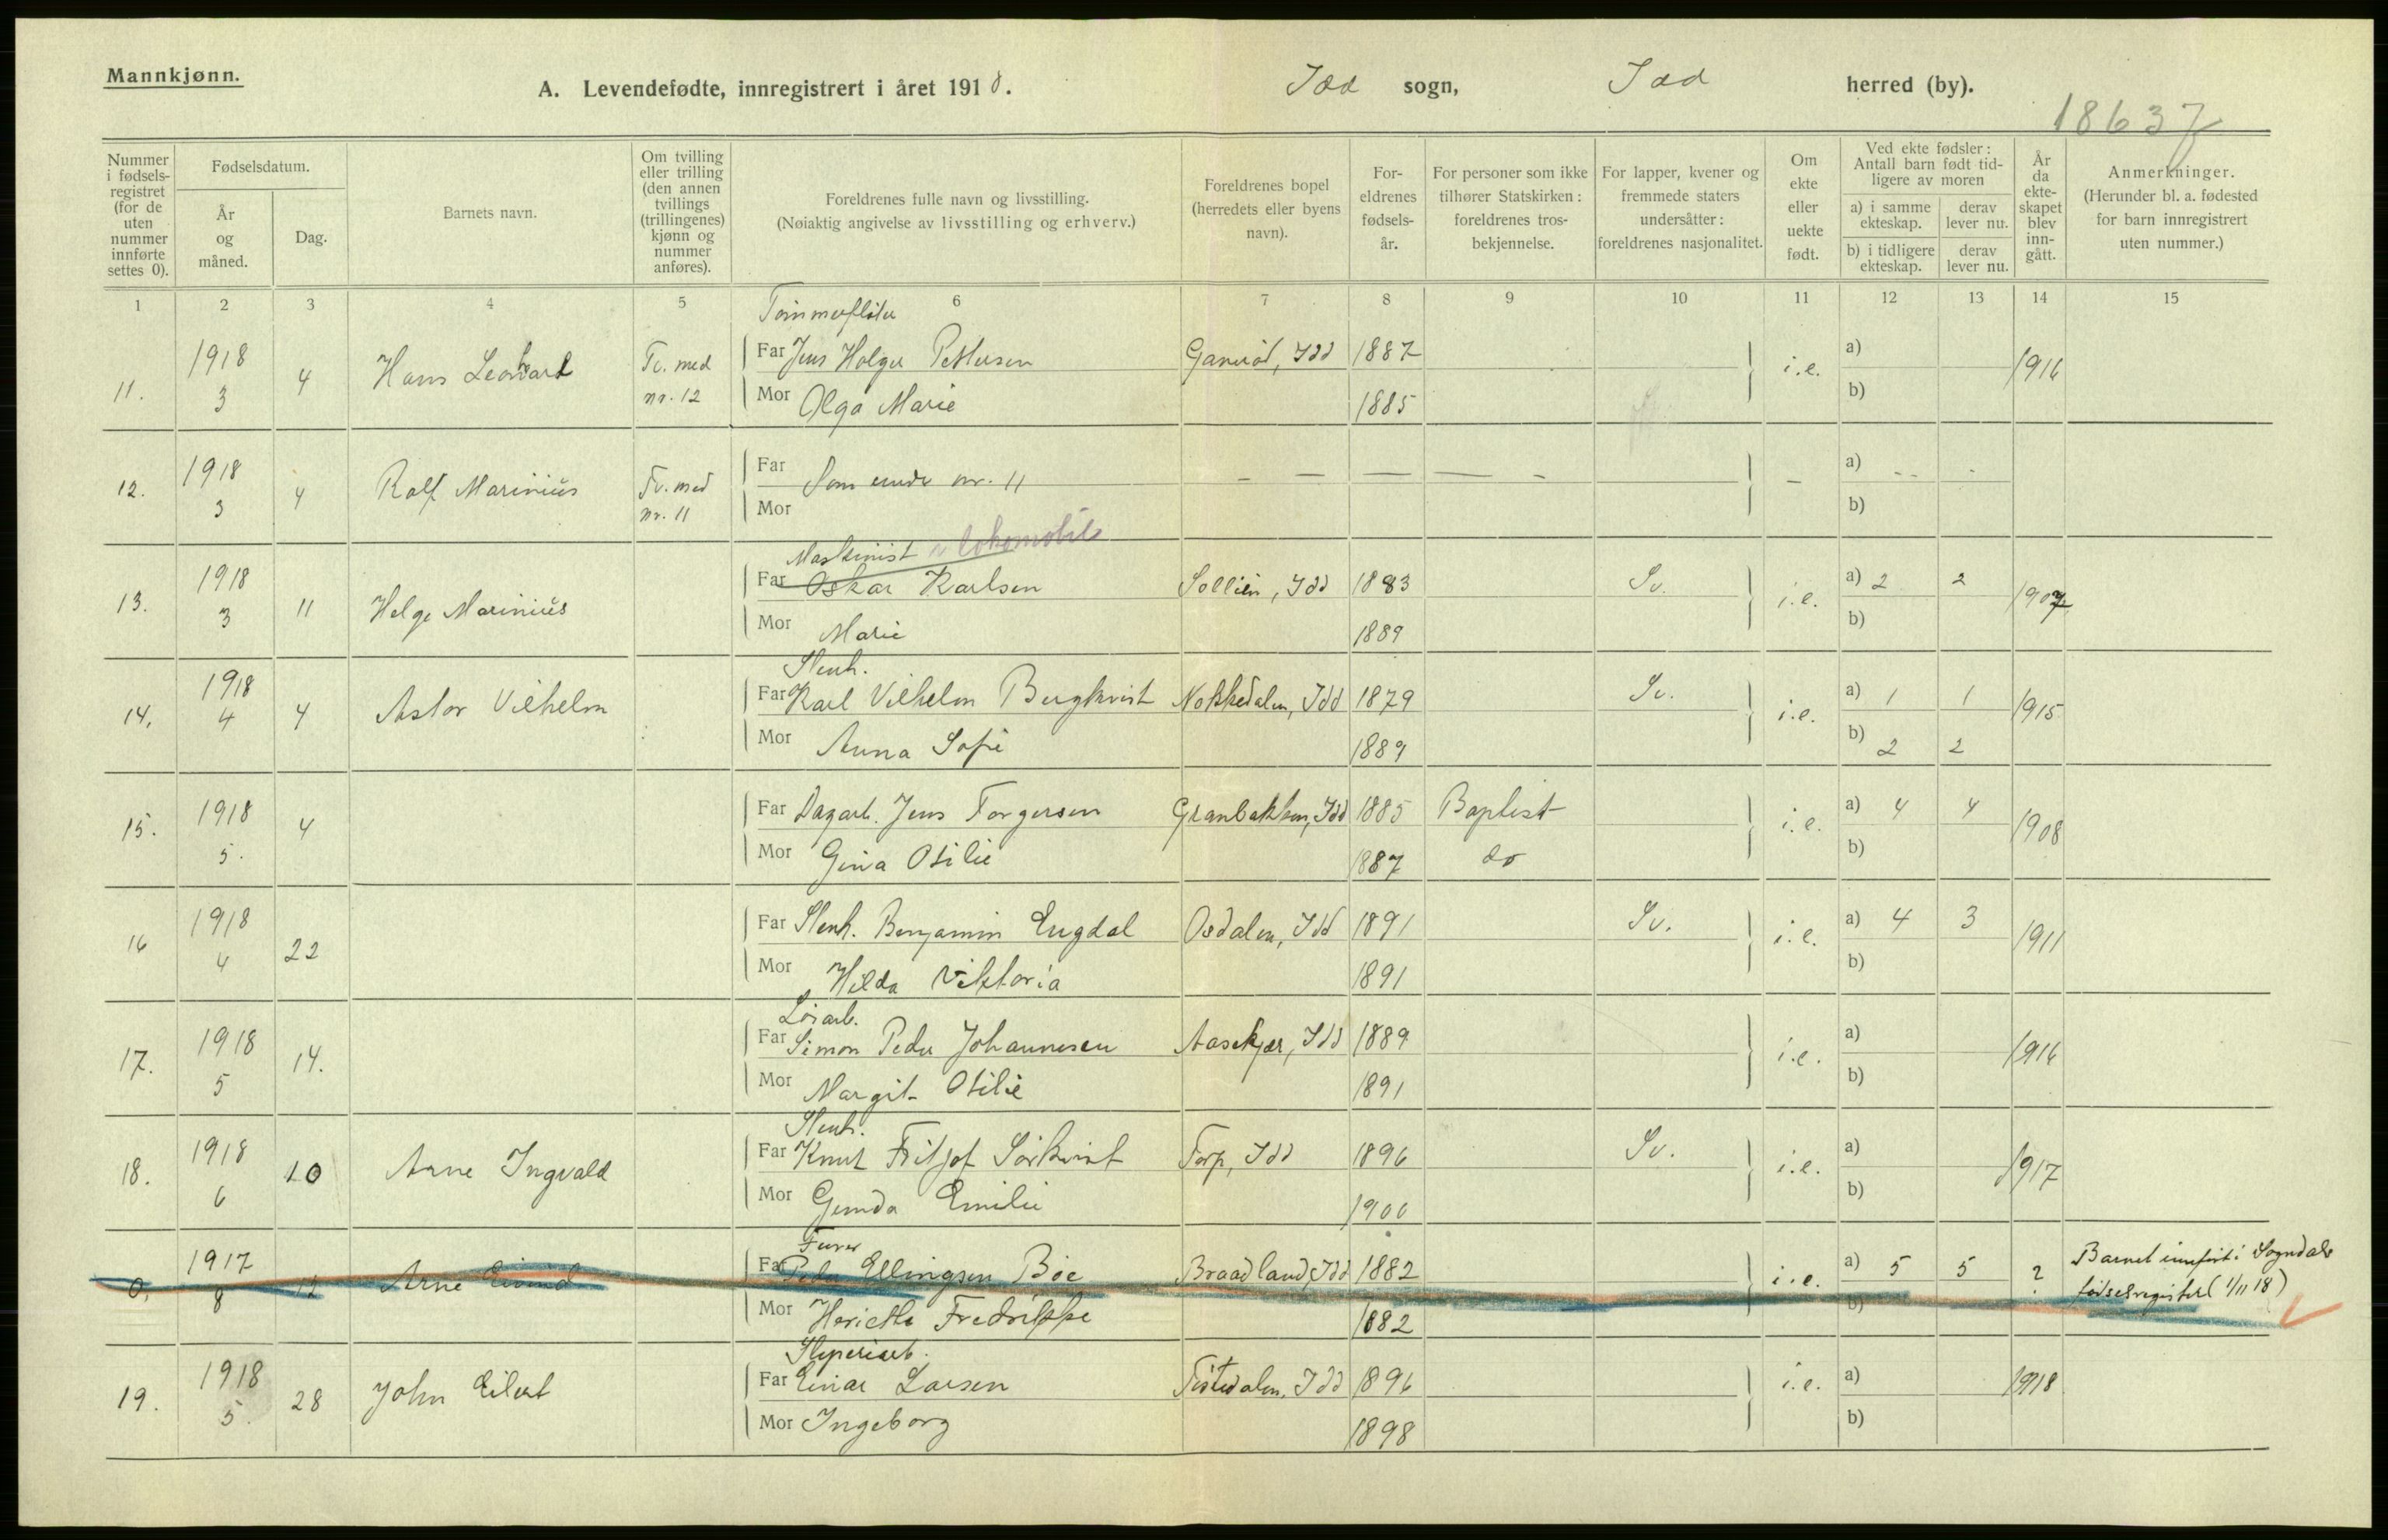 Mannkjønn.
A. Levendefødte, innregistrert i året 1918.
Idd sogn, Idd herred (by).
18637
Nummer i fødsels-registret (for de uten nummer innførte settes 0).
Fødselsdatum.
År og måned.
Dag.
Barnets navn.
Om tvilling eller trilling (den annen tvillings (trillingenes) kjønn og nummer anføres).
Foreldrenes fulle navn og livsstilling.
(Nøiaktig angivelse av livsstilling og erhverv.)
Foreldrenes bopel (herredets eller byens navn).
For-eldrenes fødsels-år.
For personer som ikke tilhører Statskirken: foreldrenes tros-bekjennelse.
For lapper, kvener og fremmede staters undersåtter: foreldrenes nasjonalitet.
Om ekte eller uekte født.
Ved ekte fødsler: Antall barn født tid-ligere av moren
a) i samme ekteskap.
derav lever nu.
b) i tidligere ekteskap.
derav lever nu.
År da ekte-skapet blev inn-gått.
Anmerkninger.
(Herunder bl. a. fødested for barn innregistrert uten nummer.)
1 2 3 4 5 6 7 8 9 10 11 12 13 14 15
Tømmerfløter
11. 1918 3 4 Hans Leonhart Tv. med nr. 12 Far Jens Holger Pettersen Ganerød, Idd 1887 i.e. a) 1916
Mor Olga Marie 1885 b)
12. 1918 3 4 Rolf Marinius Tv. med nr. 11 Far Som under nr. 11 — — — — — — a) - - -
Mor b)
Maskinist v lokomobil
13. 1918 3 11 Helge Marinius Far Oskar Karlsen Sollien, Idd 1883 Sv. i.e. a) 2 2 1907
Mor Marie 1889 b)
Stenh.
14. 1918 4 4 Astor Vilhelm Far Karl Vilhelm Bergkvist Nokkedalen, Idd 1879 Sv. i.e. a) 1 1 1915
Mor Anna Sofie 1889 b) 2 2
15. 1918 5. 4 Far Dagarb. Jens Torgersen Granbakken, Idd 1885 Baptist i.e. a) 4 4 1908
Mor Gina Otilie 1887 do b)
16 1918 4 22 Far Stenh. Benjamin Engdal Osdalen, Idd 1891 Sv. i.e. a) 4 3 1911
Mor Hilda Viktoria 1891 b)
Løsarb.
17. 1918 5 14. Far Simon Peder Johannesen Aasekjær, Idd 1889 i.e. a) 1916
Mor Margit Otilie 1891 b)
Stenh.
18. 1918 6 10 Arne Ingvald Far Knut Fritjof Sørkvist Torp, Idd 1896 Sv. i.e. a) 1917
Mor Gunda Emilie 1900 b)
0. 1917 8 12 Arne Eivind Far Peder Ellingsen Bøe Braadland, Idd 1882 i.e. a) 5 5 ? Barnet innført i Sogndals fødselsregister (1/11 18)
Mor Henriette Fredrikke 1882 b)
Sliperiarb.
19. 1918 5. 28 John Eilert Far Einar Larsen Tistedalen, Idd 1896 i.e. a) 1918
Mor Ingeborg 1898 b)